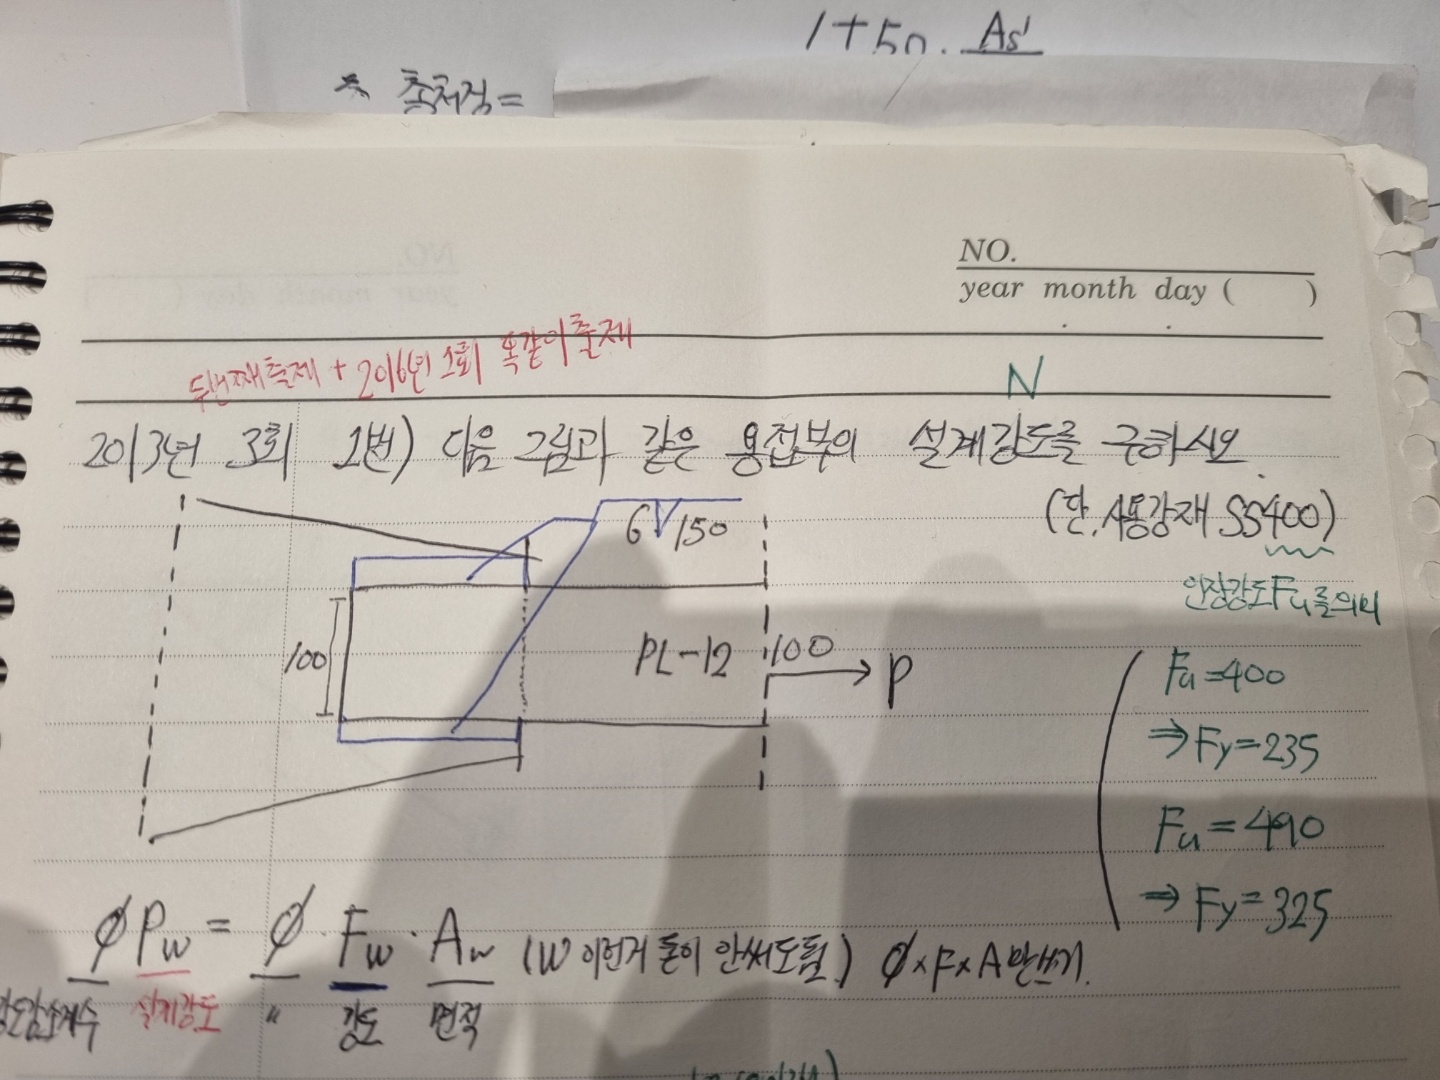 1+50. As'
* 총처짐 =
NO.
year month day ( )
두번째출제 + 2016년 1회 똑같이출제
N
2013년 3회 1번) 다음 그림과 같은 용접부의 설계강도를 구하시오.
(단, 사용강재 SS400)
인장강도Fu를의미
6 150
100
PL-12
100
P
Fu=400
⇒ Fy=235
Fu=490
⇒ Fy=325
ØPw = Ø · Fw · Aw (W 이런거 굳이 안써도됨) Ø×F×A 만쓰기.
강도감소계수 설계강도 〃 강도 면적